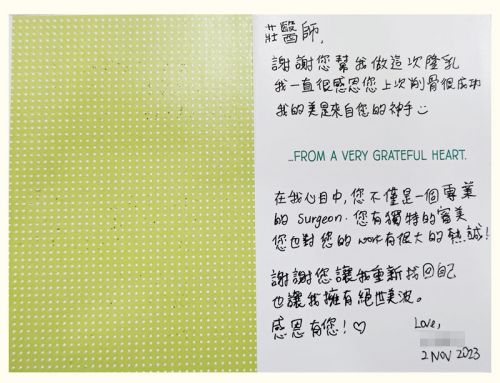 莊醫師,
謝謝您幫我做這次隆乳
我一直很感恩您上次削骨很成功
我的美是來自您的神手☺
...FROM A VERY GRATEFUL HEART.
在我心目中,您不僅是一個專業
的 surgeon. 您有獨特的審美
您也對您的 work 有很大的熱誠!
謝謝您讓我重新找回自己
也讓我擁有絕世美波。
感恩有您!♡
Love,
2 NOV 2023